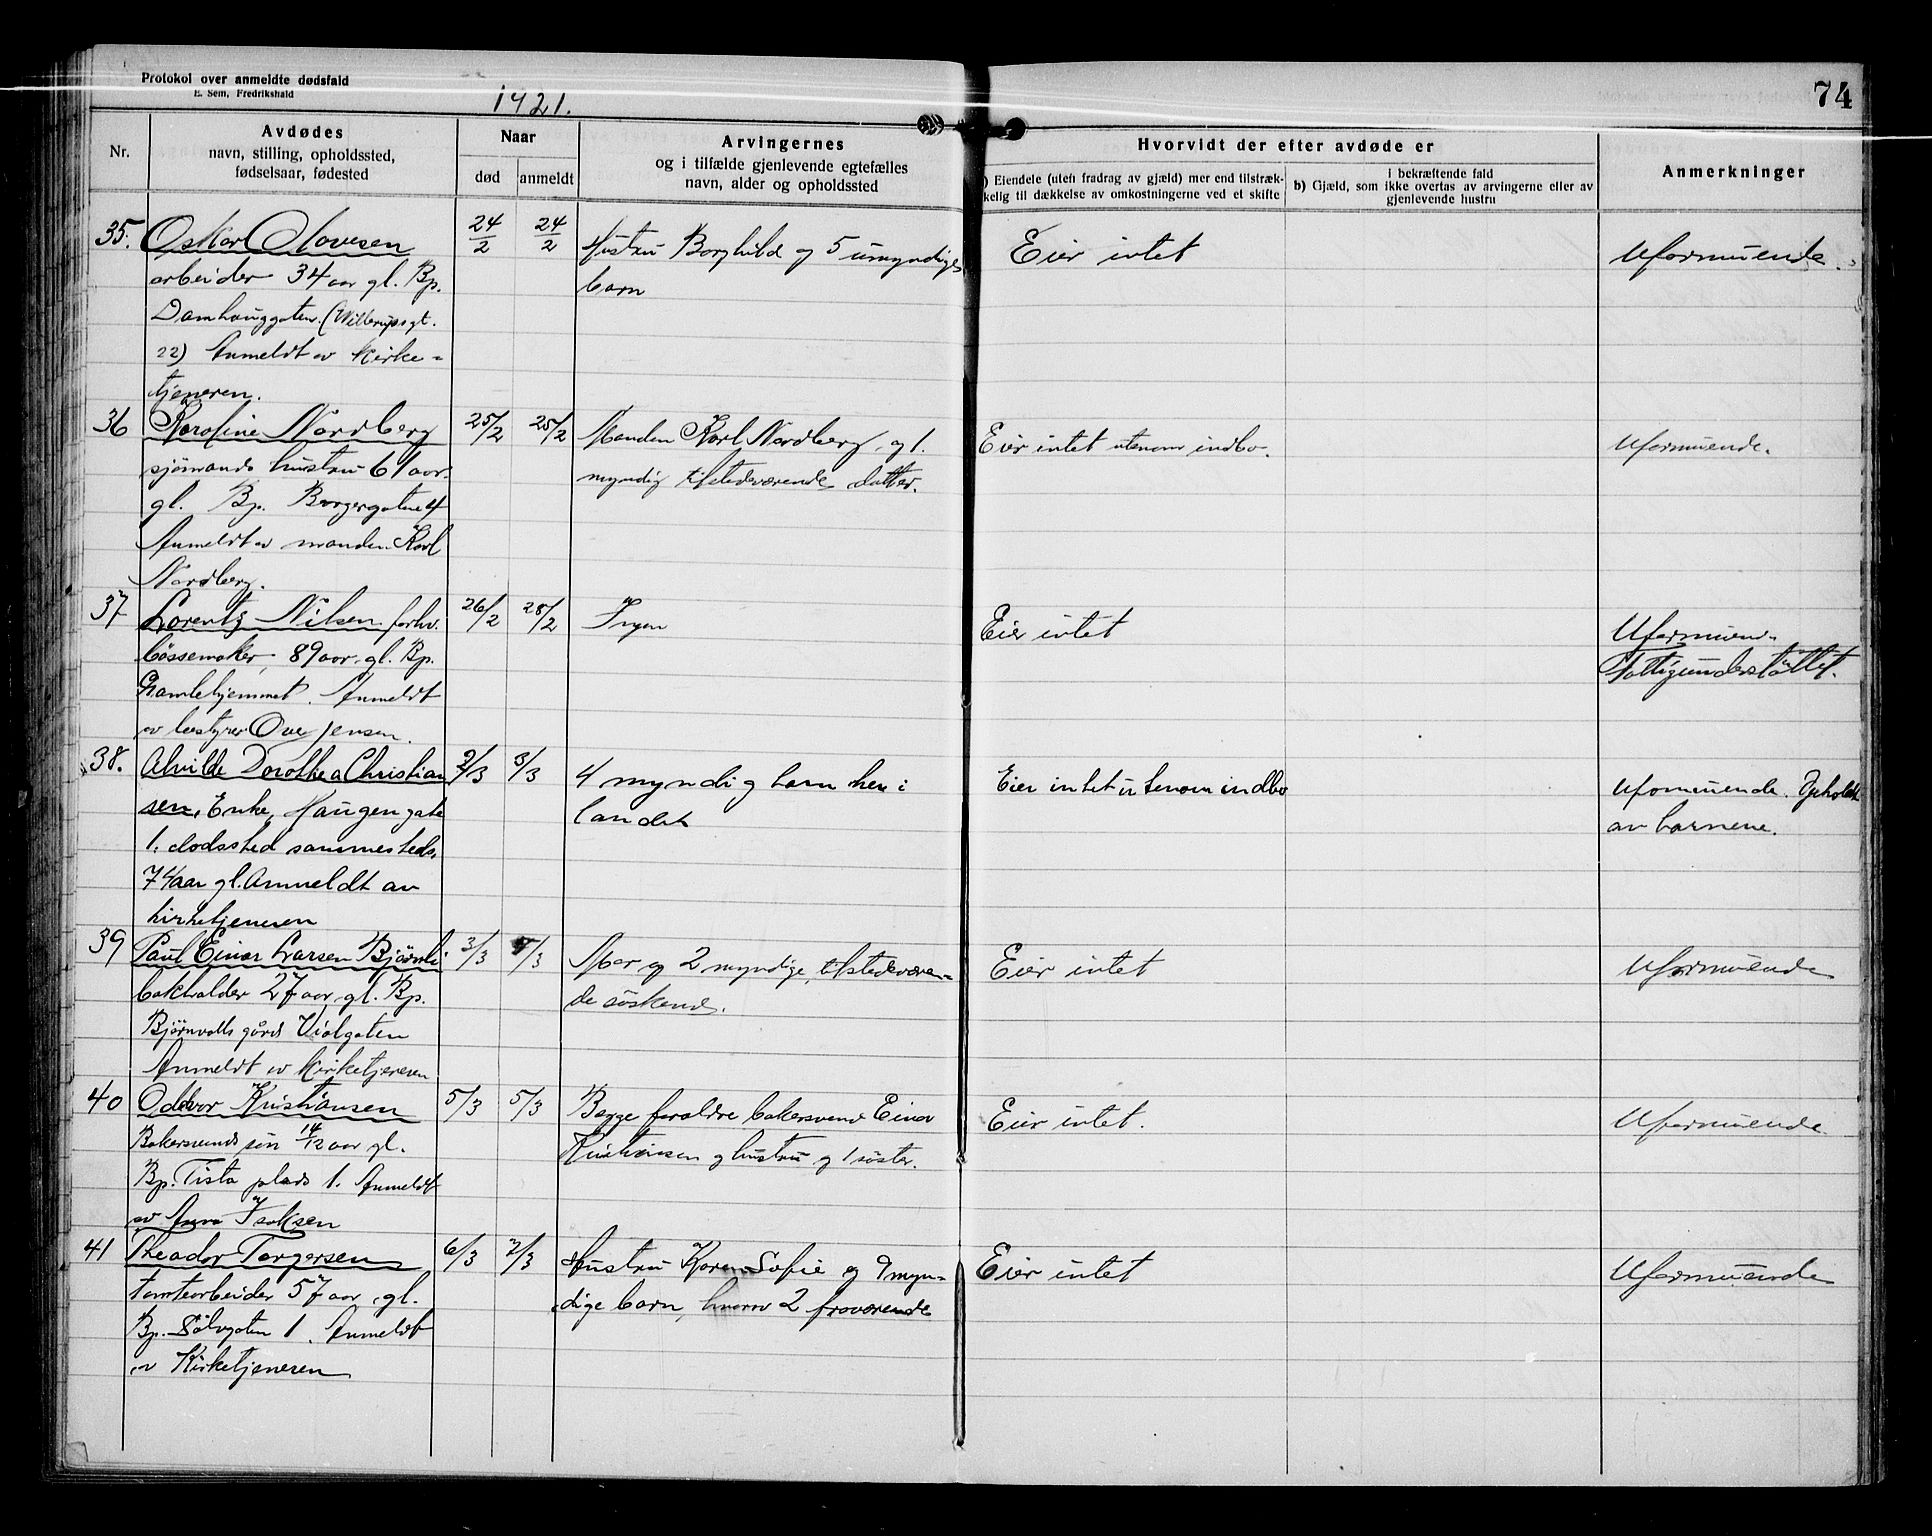 Protokol over anmeldte dødsfald
E. Sem, Fredrikshald
1921.
74
Nr.
Avdødes
navn, stilling, opholdssted,
fødselsaar, fødested
Naar
død
anmeldt
Arvingernes
og i tilfælde gjenlevende egtefælles
navn, alder og opholdssted
Hvorvidt der efter avdøde er
) Eiendele (uten fradrag av gjæld) mer end tilstræk-
kelig til dækkelse av omkostningerne ved et skifte
i bekræftende fald
b) Gjæld, som ikke overtas av arvingerne eller av
gjenlevende hustru
Anmerkninger
35. Oskar Olavesen
arbeider 34 aar gl. Bp.
Damhauggaten. (Willerupsgt.
22) Anmeldt av kirke-
tjeneren.
24/2
24/2
Hustru Borghild og 5 umyndige
barn
Eier intet
Uformuende.
36 Karoline Nordberg
sjömands hustru 61 aar
gl. Bp. Borgergaten 4
Anmeldt av manden Karl
Nordberg.
25/2
25/2
Manden Karl Nordberg, og 1.
myndig tilstedeværende datter.
Eier intet utenom indbo.
Uformuende.
37 Lorentz Nilsen forhv.
bössemaker, 89 aar gl. Bp.
Gamlehjemmet. Anmeldt
av bestyrer Ove Jensen.
26/2
28/2
Ingen
Eier intet
Uformuend.
Fattigunderstöttet.
38. Alvilde Dorothea Christian
sen, Enke, Haugengate
1. dodssted sammesteds,
74 aar gl. Anmeldt av
kirketjeneren
2/3
3/3
4 myndig barn her i
landet
Eier intet utenom indbo
Uformuende. Opholdt
av barnene.
39 Paul Einar Larsen Björnli
bakholder 27 aar gl. Bp.
Bjørnvolls gård Violgaten
Anmeldt av Kirketjeneren
3/3
4/3
Mor og 2 myndige, tilstedeværen-
de söskend.
Eier intet
Uformuende
40 Oddvar Kristiansen
Bakersvends sön 14/12 aar gl.
Bp. Tista plads 1. Anmeldt
av Anna Isaksen
5/3
5/3
Begge foraldre bakersvend Einar
Kristiansen og hustru og 1 söster.
Eier intet.
Uformuende.
41 Theodor Torgersen
tomtearbeider 57 aar gl.
Bp. Sölvgaten 1. Anmeldt
av Kirketjeneren
6/3
7/3
Hustru Karen Sofie og 9 myn-
dige barn, hvorav 2 fraværende
Eier intet
Uformuende